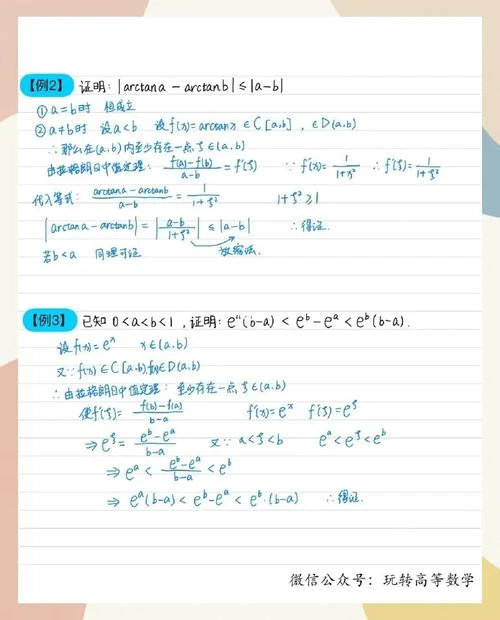 【例2】 证明: |arctan a - arctan b| ≤ |a-b|
① a=b时 恒成立
② a≠b时 设a<b 设f(x)=arctanx ∈C[a,b], ∈D(a,b)
∴ 那么在(a,b)内至少存在一点ξ∈(a,b)
由拉格朗日中值定理: \frac{f(a)-f(b)}{a-b} = f'(ξ) ∵ f'(x)=\frac{1}{1+x²} ∴ f'(ξ)=\frac{1}{1+ξ²}
代入等式: \frac{arctana-arctanb}{a-b} = \frac{1}{1+ξ²} 1+ξ²≥1
|arctana-arctanb| = |\frac{a-b}{1+ξ²}| ≤ |a-b| ∴得证.
若b<a 同理可证 放缩法.
【例3】 已知 0<a<b<1, 证明: e^a(b-a) < e^b-e^a < e^b(b-a).
设f(x)=e^x x∈(a,b)
又∵f(x)∈C[a,b] f(x)∈D(a,b)
∴由拉格朗日中值定理: 至少存在一点ξ∈(a,b)
使f'(ξ)= \frac{f(b)-f(a)}{b-a} f'(x)=e^x f'(ξ)=e^ξ
⇒ e^ξ = \frac{e^b-e^a}{b-a} 又∵ a<ξ<b e^a<e^ξ<e^b
⇒ e^a < \frac{e^b-e^a}{b-a} < e^b
⇒ e^a(b-a) < e^b-e^a < e^b·(b-a) ∴得证.
微信公众号：玩转高等数学